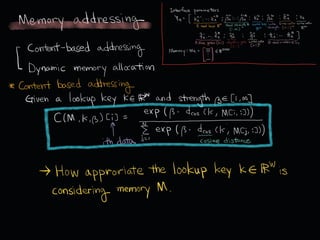 Memory addressing
Interface parameters
Content-based addressing
Dynamic memory allocation
* Content based addressing
Given a lookup key k ∈ ℝ^W and strength β ∈ [1, ∞]
C(M, k, β)[i] = exp(β · d_cos(k, M[i, :])) / Σ exp(β · d_cos(k, M[j, :]))
ith data
cosine distance
→ How approriate the lookup key k ∈ ℝ^W is
considering memory M.